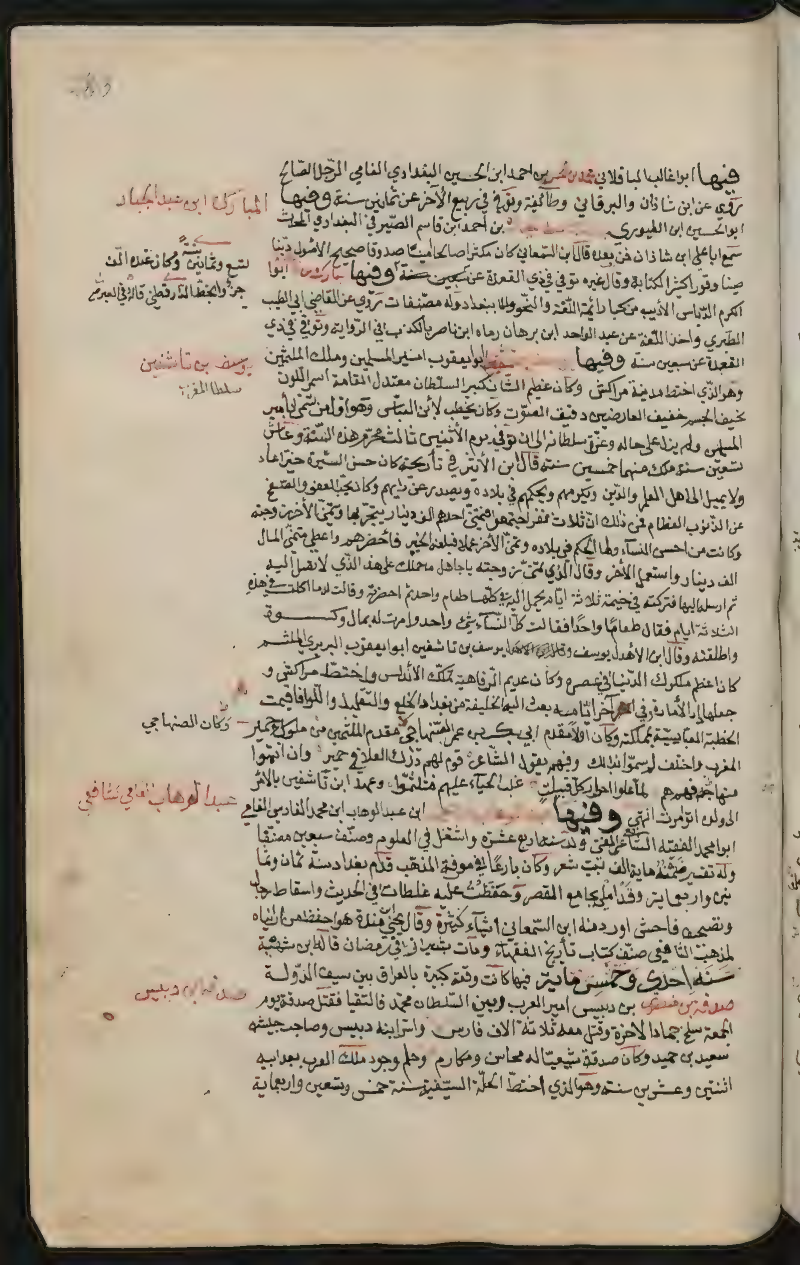 فيها ابوا غالب الباقلاني محمد بن الحسن بن احمد ابن الحسين البغدادي الفامي الرجل الصالح
روي عن ابن شاذان والبرقاني وطائفة وتوفي في ربيع الآخر عن ثمانين سنة وفيها
المبارك ابن عبد الجبار
ابو الحسين ابن الطيوري بن احمد ابن قاسم الصيرفي البغدادي المحدث
سمع ابا علي ابن شاذان فمن بعده قال ابن السمعاني كان مكثرا صالحا امينا صدوقا صحيح الاصول دينا
صينا وقورا كثير الكتابة وقال غيره توفي في ذي القعدة عن سنة وفيها ابوا
الكرم الدباس الأديب من كبار ائمة اللغة والنحو ببغداد وله مصنفات روي عن القاضي ابي الطيب
الطبري واخذ اللغة عن عبد الواحد ابن برهان رماه ابن ناصر بالكذب في الرواية وتوفي في ذي
القعدة عن سبعين سنة وفيها ابوا يعقوب امير المسلمين وملك الملثمين
يوسف بن تاشفين
سلطان المغرب
وهو الذي اختط مدينة مراكش وكان عظيم الشان كبير السلطان معتدل القامة اسمر اللون
نحيف الجسم خفيف العارضين دقيق الصوت وكان يخطب لابن العباس وهو اول من تسمى بامير
المسلمين ولم يزل على حاله وعز سلطانه الى ان توفي يوم الأثنين ثالث محرم هذه السنة وعاش
تسعين سنة ملك منها خمسين سنة قال ابن الأثير في تأريخه كان حسن السيرة خيرا عادلا
يميل الى اهل العلم والدين ويكرمهم ويحكمهم في بلاده ويصدر عن رايهم وكان يحب العفو والصفح
عن الذنوب العظام فمن ذلك ان ثلاثة نفر اجتمعوا فتمنى احدهم الف دينار يتجر بها وتمنى الآخر زوجته
وكانت من احسن النساء ولها الحكم في بلاده وتمنى الآخر عملا فبلغه الخبر فأحضرهم واعطى متمني المال
الف دينار واستعمل الآخر وقال للذي تمنى زوجته يا جاهل ما حملك على هذا الذي لا تصل اليه
ثم ارسله اليها فتركته في خيمة ثلاثة ايام يحمل اليه في كلها طعام واحد ثم احضرته وقالت له ما اكلت في هذه
الثلاثة ايام فقال طعاما واحدا فقالت كل النساء شيء واحد وامرت له بمال وكسوة
واطلقته وقال ابن الأهدل يوسف بن تاشفين ابوا يعقوب البربري الملثم
كان اعظم ملوك الدنيا في عصره وكان عديم الرفاهية تملك الأندلس واختط مراكش و
جعلها دار الأمارة وفي آخر ايامه بعث اليه الخليفة من بغداد الخلع والتقليد واللوا فاقيمت
الخطبة العباسية بمملكته وكان اولا مقدم ابي بكر بن عمر الصنهاجي مقدم الملثمين من ملوك حمير
وكان الصنهاجي
المغرب واختلف لم سموا بذلك وفيهم يقول الشاعر قوم لهم درك العلا في حمير وان انتموا
صنهاجة فهم هم لما حووا احراز كل فضيلة غلب الحياء عليهم فتلثموا وعهد ابن تاشفين بالأمر
الى ولده انتهى وفيها ابن عبد الوهاب ابن محمد الفارسي الفامي
عبد الوهاب الفامي شافعي
ابوا محمد الفقيه الشافعي المفتي ولد سنة اربع عشرة واشتغل في العلوم وصنف سبعين مصنفا
وله تفسير ضمنه ماية الف بيت شعر وكان بارعا في معرفة المذهب قدم بغداد سنة ثمان وثما
نين واربعماية وقد املى بجامع القصر وحفظت عليه غلطات في الحديث واسقاط رجال
وتصحيف فاحش اورد منه ابن السمعاني اشياء كثيرة وقال يحيى بن مندة هو احفظ من رايناه
لمذهب الشافعي صنف كتاب تأريخ الفقهاء ومات بشيراز في رمضان قاله ابن شهبة
سنه احدى وخمس ماية فيها كانت وقعة كبيرة بالعراق بين سيف الدولة
صدقة بن منصور بن دبيس امير العرب وبين السلطان محمد فالتقيا فقتل صدقة يوم
صدقه بن دبيس
الجمعة سلخ جمادا الآخرة وقتل معه ثلاثة الاف فارس واسر ابنه دبيس وصاحب جيشه
سعيد بن حميد وكان صدقة شيعيا له محاسن ومكارم وحلم وجود ملك العرب بعد ابيه
اثنتين وعشرين سنة وهو الذي اختط الحلة السيفية سنة خمس وتسعين واربعماية